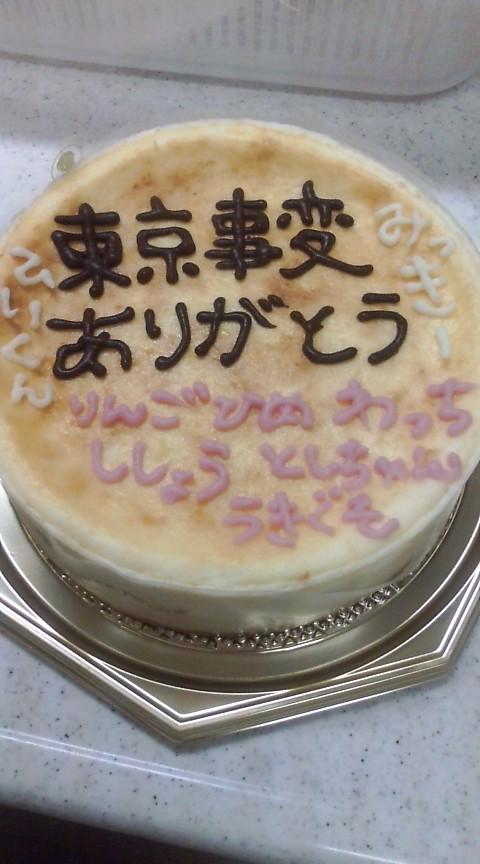 東京事変
ありがとう
りんごひめ わっち
ししょう としちゃん
うきぐも
ひいくん
みっきー